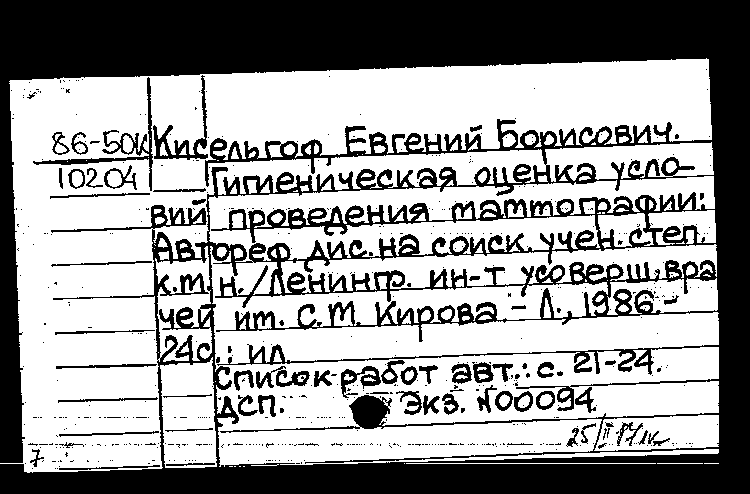 86-50к Кисельгоф, Евгений Борисович.
10204 Гигиеническая оценка усло-
вий проведения маммографии:
Автореф. дис. на соиск. учен. степ.
к.м.н. / Ленингр. ин-т усоверш. вра
чей им. С.М. Кирова. – Л., 1986.–
24с.: ил.
Список работ авт.: с. 21-24.
ДСП. Экз. N00094
25/II
7